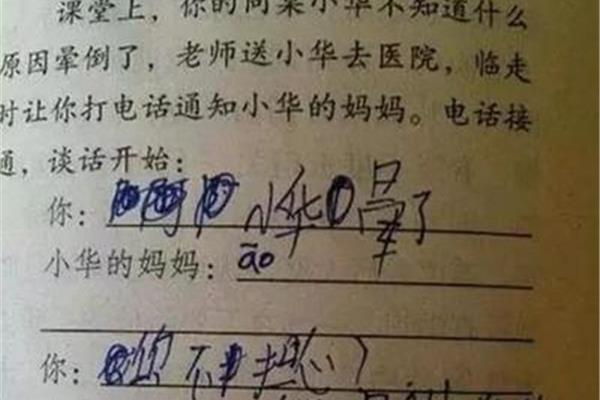 课堂上，你的同桌小华不知道什么
原因晕倒了，老师送小华去医院，临走
时让你打电话通知小华的妈妈。电话接
通，谈话开始：
你：小华晕了
小华的妈妈：āo
你：你不担心